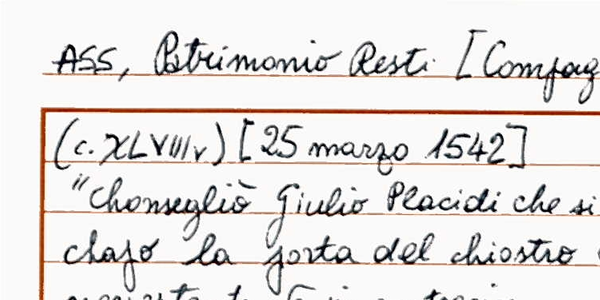 ASS, Patrimonio Resti [Compag
(c. XLVIIIv) [25 marzo 1542]
"Chonsegliò Giulio Placidi che si
la porta del chiostro